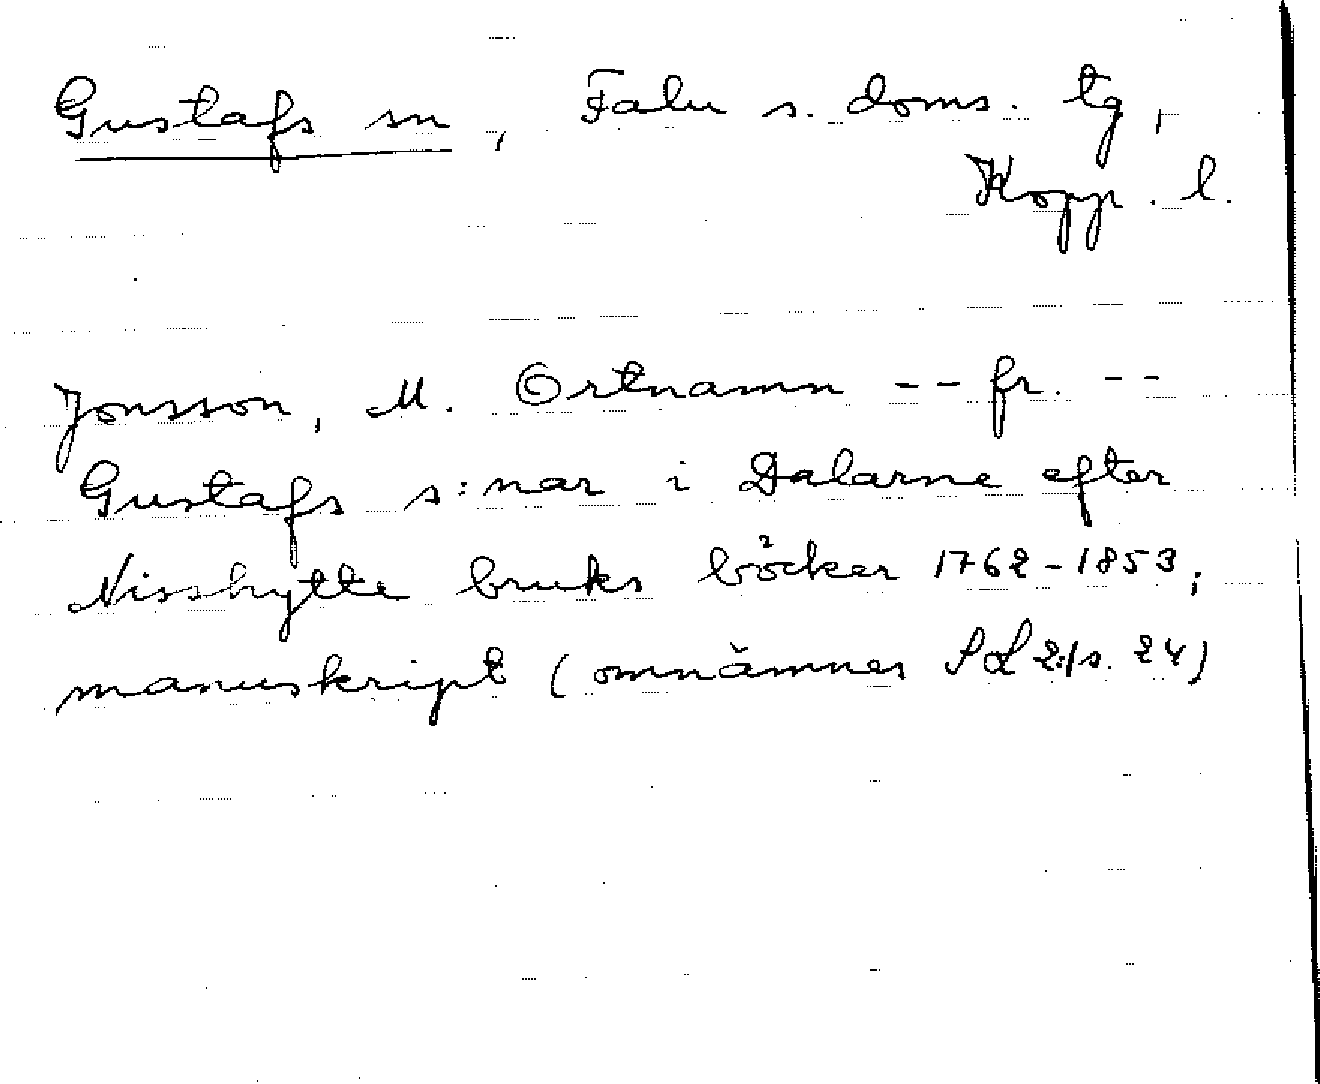 Gustafs sn, Falu s. doms. tg,
Kopp. l.
Jonsson, M. Ortnamn -- fr. --
Gustafs s:nar i Dalarne efter
Nisshytte bruks böcker 1762-1853;
manuskript (omnämnes SOL 2:1 s. 24)